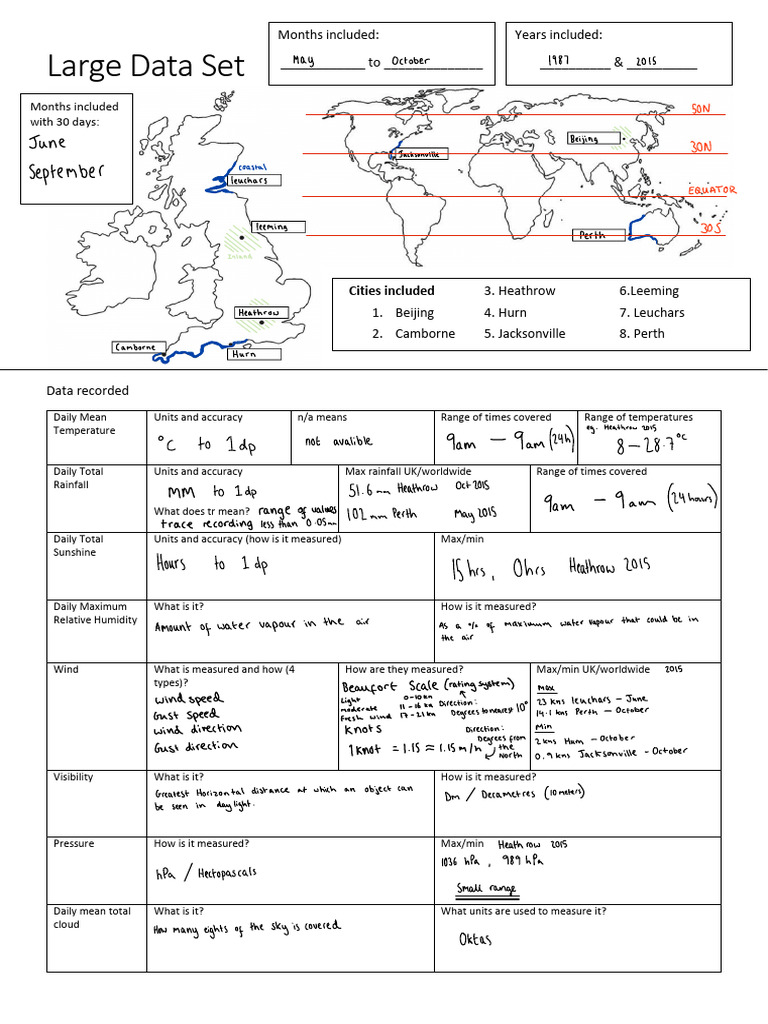 Large Data Set
Months included:
May to October
Years included:
1987 & 2015
Months included
with 30 days:
June
September
coastal
leuchars
leeming
Inland
Heathrow
Camborne
Hurn
50N
Beijing
Jacksonville
30N
EQUATOR
Perth
30S
Cities included
1. Beijing
2. Camborne
3. Heathrow
4. Hurn
5. Jacksonville
6.Leeming
7. Leuchars
8. Perth
Data recorded
Daily Mean
Temperature
Units and accuracy
°C to 1dp
n/a means
not avalible
Range of times covered
9am — 9am (24h)
Range of temperatures
eg. Heathrow 2015
8 – 28.7°C
Daily Total
Rainfall
Units and accuracy
MM to 1dp
What does tr mean? range of values
trace recording less than 0.05mm
Max rainfall UK/worldwide
51.6 mm Heathrow Oct 2015
102 mm Perth May 2015
Range of times covered
9am – 9am (24 hours)
Daily Total
Sunshine
Units and accuracy (how is it measured)
Hours to 1 dp
Max/min
15 hrs, 0 hrs Heathrow 2015
Daily Maximum
Relative Humidity
What is it?
Amount of water vapour in the air
How is it measured?
As a % of maximum water vapour that could be in
the air
Wind
What is measured and how (4
types)?
wind speed
Gust speed
wind direction
Gust direction
How are they measured?
Beaufort Scale (rating system)
Light 0-10kn
moderate 11-16 kn Direction:
Fresh wind 17-21kn Degrees to nearest 10°
Knots
Direction:
Degrees from
the
North
1 knot = 1.15 ≈ 1.15 m/h
Max/min UK/worldwide 2015
Max
23 kns leuchars – June
14.1 kns Perth – October
Min
2 kns Hurn – October
0.9 kns Jacksonville - October
Visibility
What is it?
Greatest Horizontal distance at which an object can
be seen in daylight.
How is it measured?
Dm / Decametres (10 meters)
Pressure
How is it measured?
hPa / Hectopascals
Max/min Heathrow 2015
1036 hPa, 989 hPa
Small range
Daily mean total
cloud
What is it?
How many eights of the sky is covered
What units are used to measure it?
Oktas